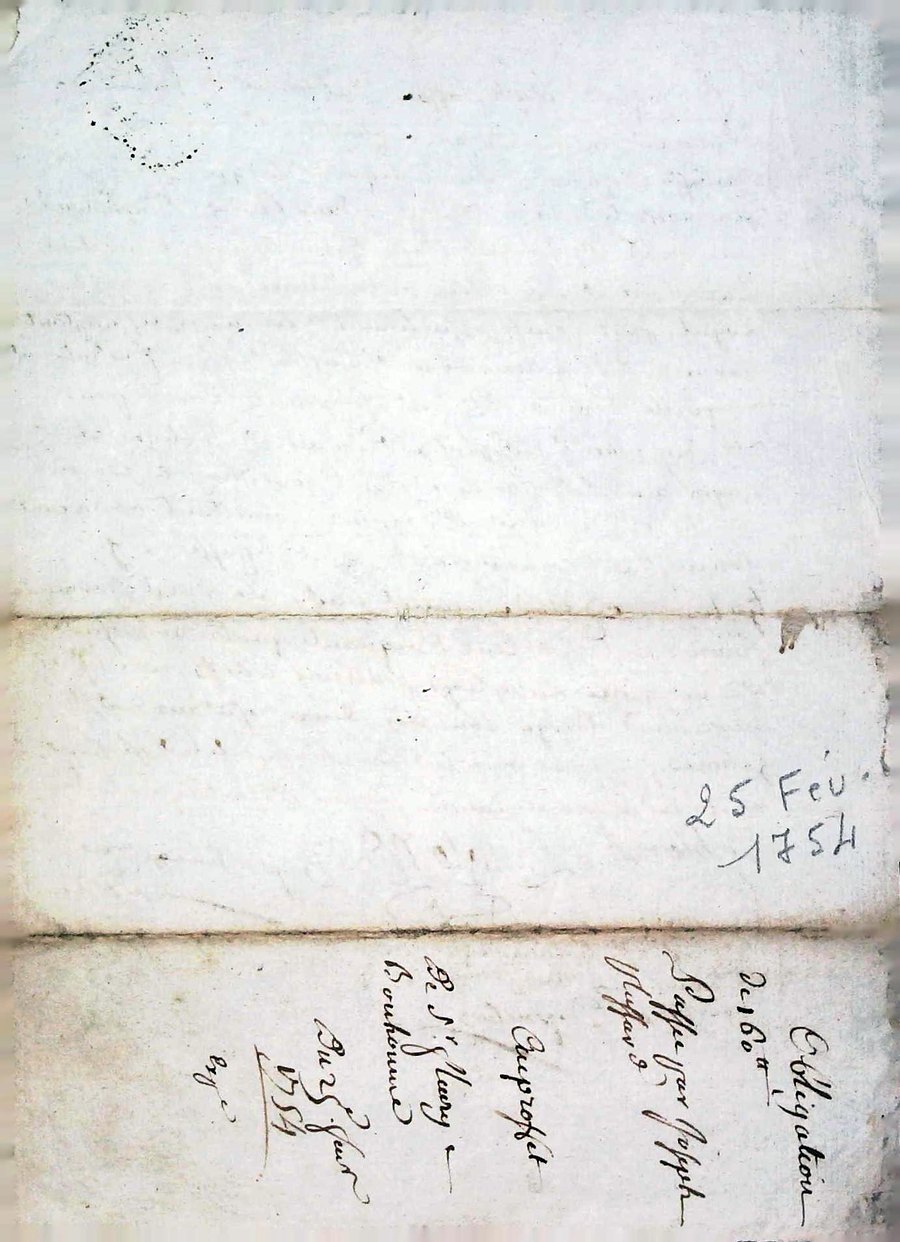 25 Fev.
1754
Obligation
de 160tt
Passée par Joseph
Au proffet
De Sr fleury
Bonhomme
Du 25e feur
1754